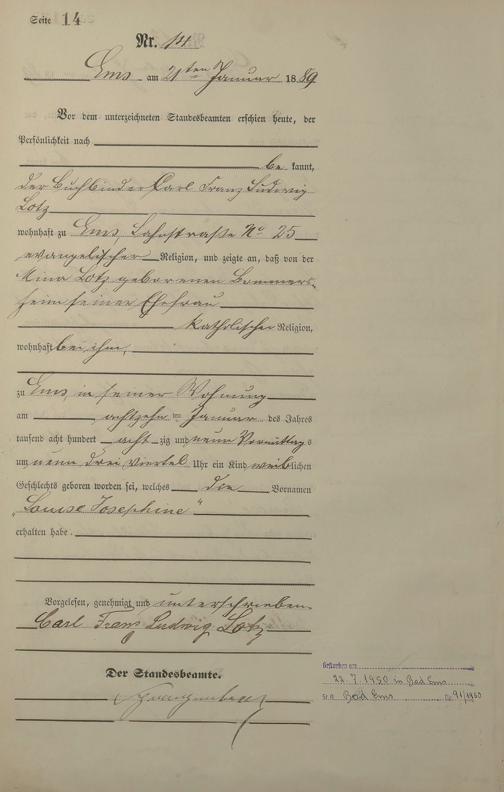 Seite 14
Nr. 14
Ems am 21ten Januar 1889
Vor dem unterzeichneten Standesbeamten erschien heute, der
Persönlichkeit nach
be kannt,
der Buchbinder Carl Franz Ludwig
Lotz
wohnhaft zu Ems Lahnstraße No 25
evangelischer Religion, und zeigte an, daß von der
Mina Lotz geborenen Bommers-
heim seiner Ehefrau
katholischer Religion,
wohnhaft bei ihm,
zu Ems, in seiner Wohnung
am achtzehn ten Januar des Jahres
tausend acht hundert acht zig und neun Vormittags
um neun drei viertel Uhr ein Kind weiblichen
Geschlechts geboren worden sei, welches die Vornamen
„Louise Josephine"
erhalten habe.
Vorgelesen, genehmigt und unterschrieben
Carl Franz Ludwig Lotz
Der Standesbeamte.
Gestorben am
22.7.1950 in Bad Ems
Bad Ems